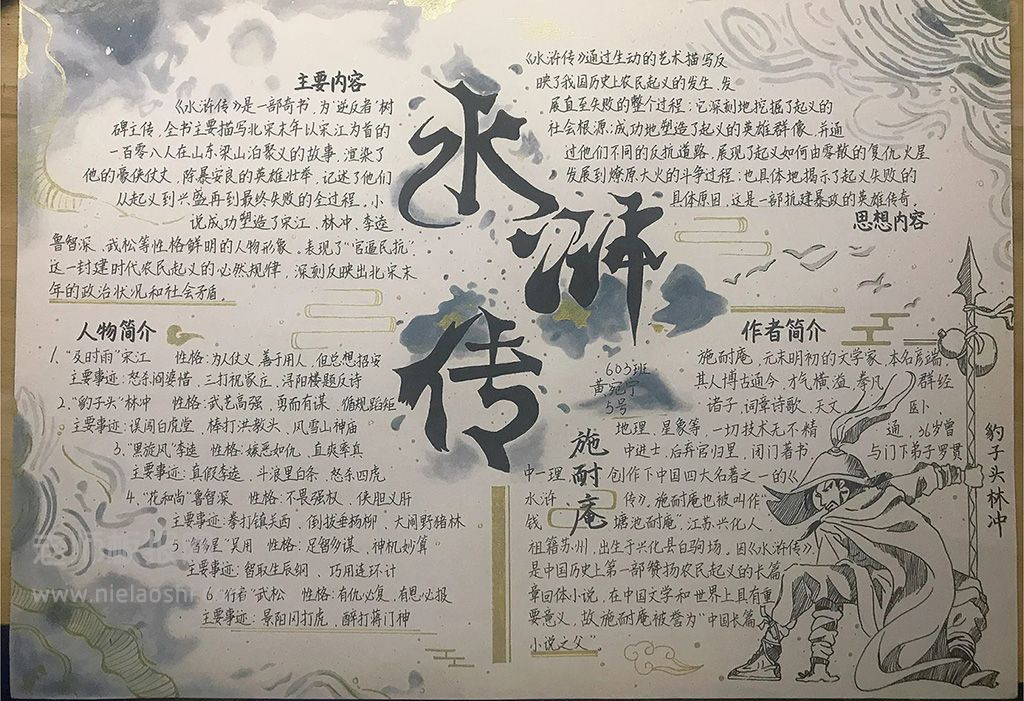 水浒传
主要内容
《水浒传》是一部奇书,为"逆反者"树
碑主传,全书主要描写北宋末年以宋江为首的
一百零八人在山东梁山泊聚义的故事,渲染了
他的豪侠仗义,除暴安良的英雄壮举,记述了他们
从起义到兴盛再到最终失败的全过程,小
说成功塑造了宋江、林冲、李逵
鲁智深、武松等性格鲜明的人物形象。表现了"官逼民抗"
这一封建时代农民起义的必然规律,深刻反映出北宋末
年的政治状况和社会矛盾。
《水浒传》通过生动的艺术描写反
映了我国历史上农民起义的发生、发
展直至失败的整个过程;它深刻地挖掘了起义的
社会根源;成功地塑造了起义的英雄群像,并通
过他们不同的反抗道路,展现了起义如何由零散的复仇火星
发展到燎原大火的斗争过程;也具体地揭示了起义失败的
具体原因,这是一部抗建暴政的英雄传奇。
思想内容
人物简介
1."及时雨"宋江 性格:为人仗义 善于用人,但总想招安
主要事迹:怒杀阎婆惜、三打祝家庄、浔阳楼题反诗
2."豹子头"林冲 性格:武艺高强、勇而有谋、循规蹈矩
主要事迹:误闯白虎堂、棒打洪教头、风雪山神庙
3."黑旋风"李逵 性格:嫉恶如仇、直爽率真
主要事迹:真假李逵、斗浪里白条、怒杀四虎
4."花和尚"鲁智深 性格:不畏强权、侠胆义肝
主要事迹:拳打镇关西、倒拔垂杨柳、大闹野猪林
5."智多星"吴用 性格:足智多谋、神机妙算
主要事迹:智取生辰纲、巧用连环计
6."行者"武松 性格:有仇必复、有恩必报
主要事迹:景阳冈打虎、醉打蒋门神
603班
黄宛宁
5号
施耐庵
作者简介
施耐庵,元末明初的文学家,本名彦端,
其人博古通今,才气横溢,举凡 群经
诸子,词章诗歌、天文、 医卜、
地理、星象等,一切技术无不精 通,36岁曾
中进士,后弃官归里,闭门著书 与门下弟子罗贯
中一理 创作下中国四大名著之一的《
水浒 传》,施耐庵也被叫作"
钱 塘池耐庵",江苏兴化人,
祖籍苏州,出生于兴化县白驹场,因《水浒传》
是中国历史上第一部赞扬农民起义的长篇
章回体小说,在中国文学和世界上具有重
要意义,故施耐庵被誉为"中国长篇
小说之父"。
豹子头林冲
www.nielaoshi.